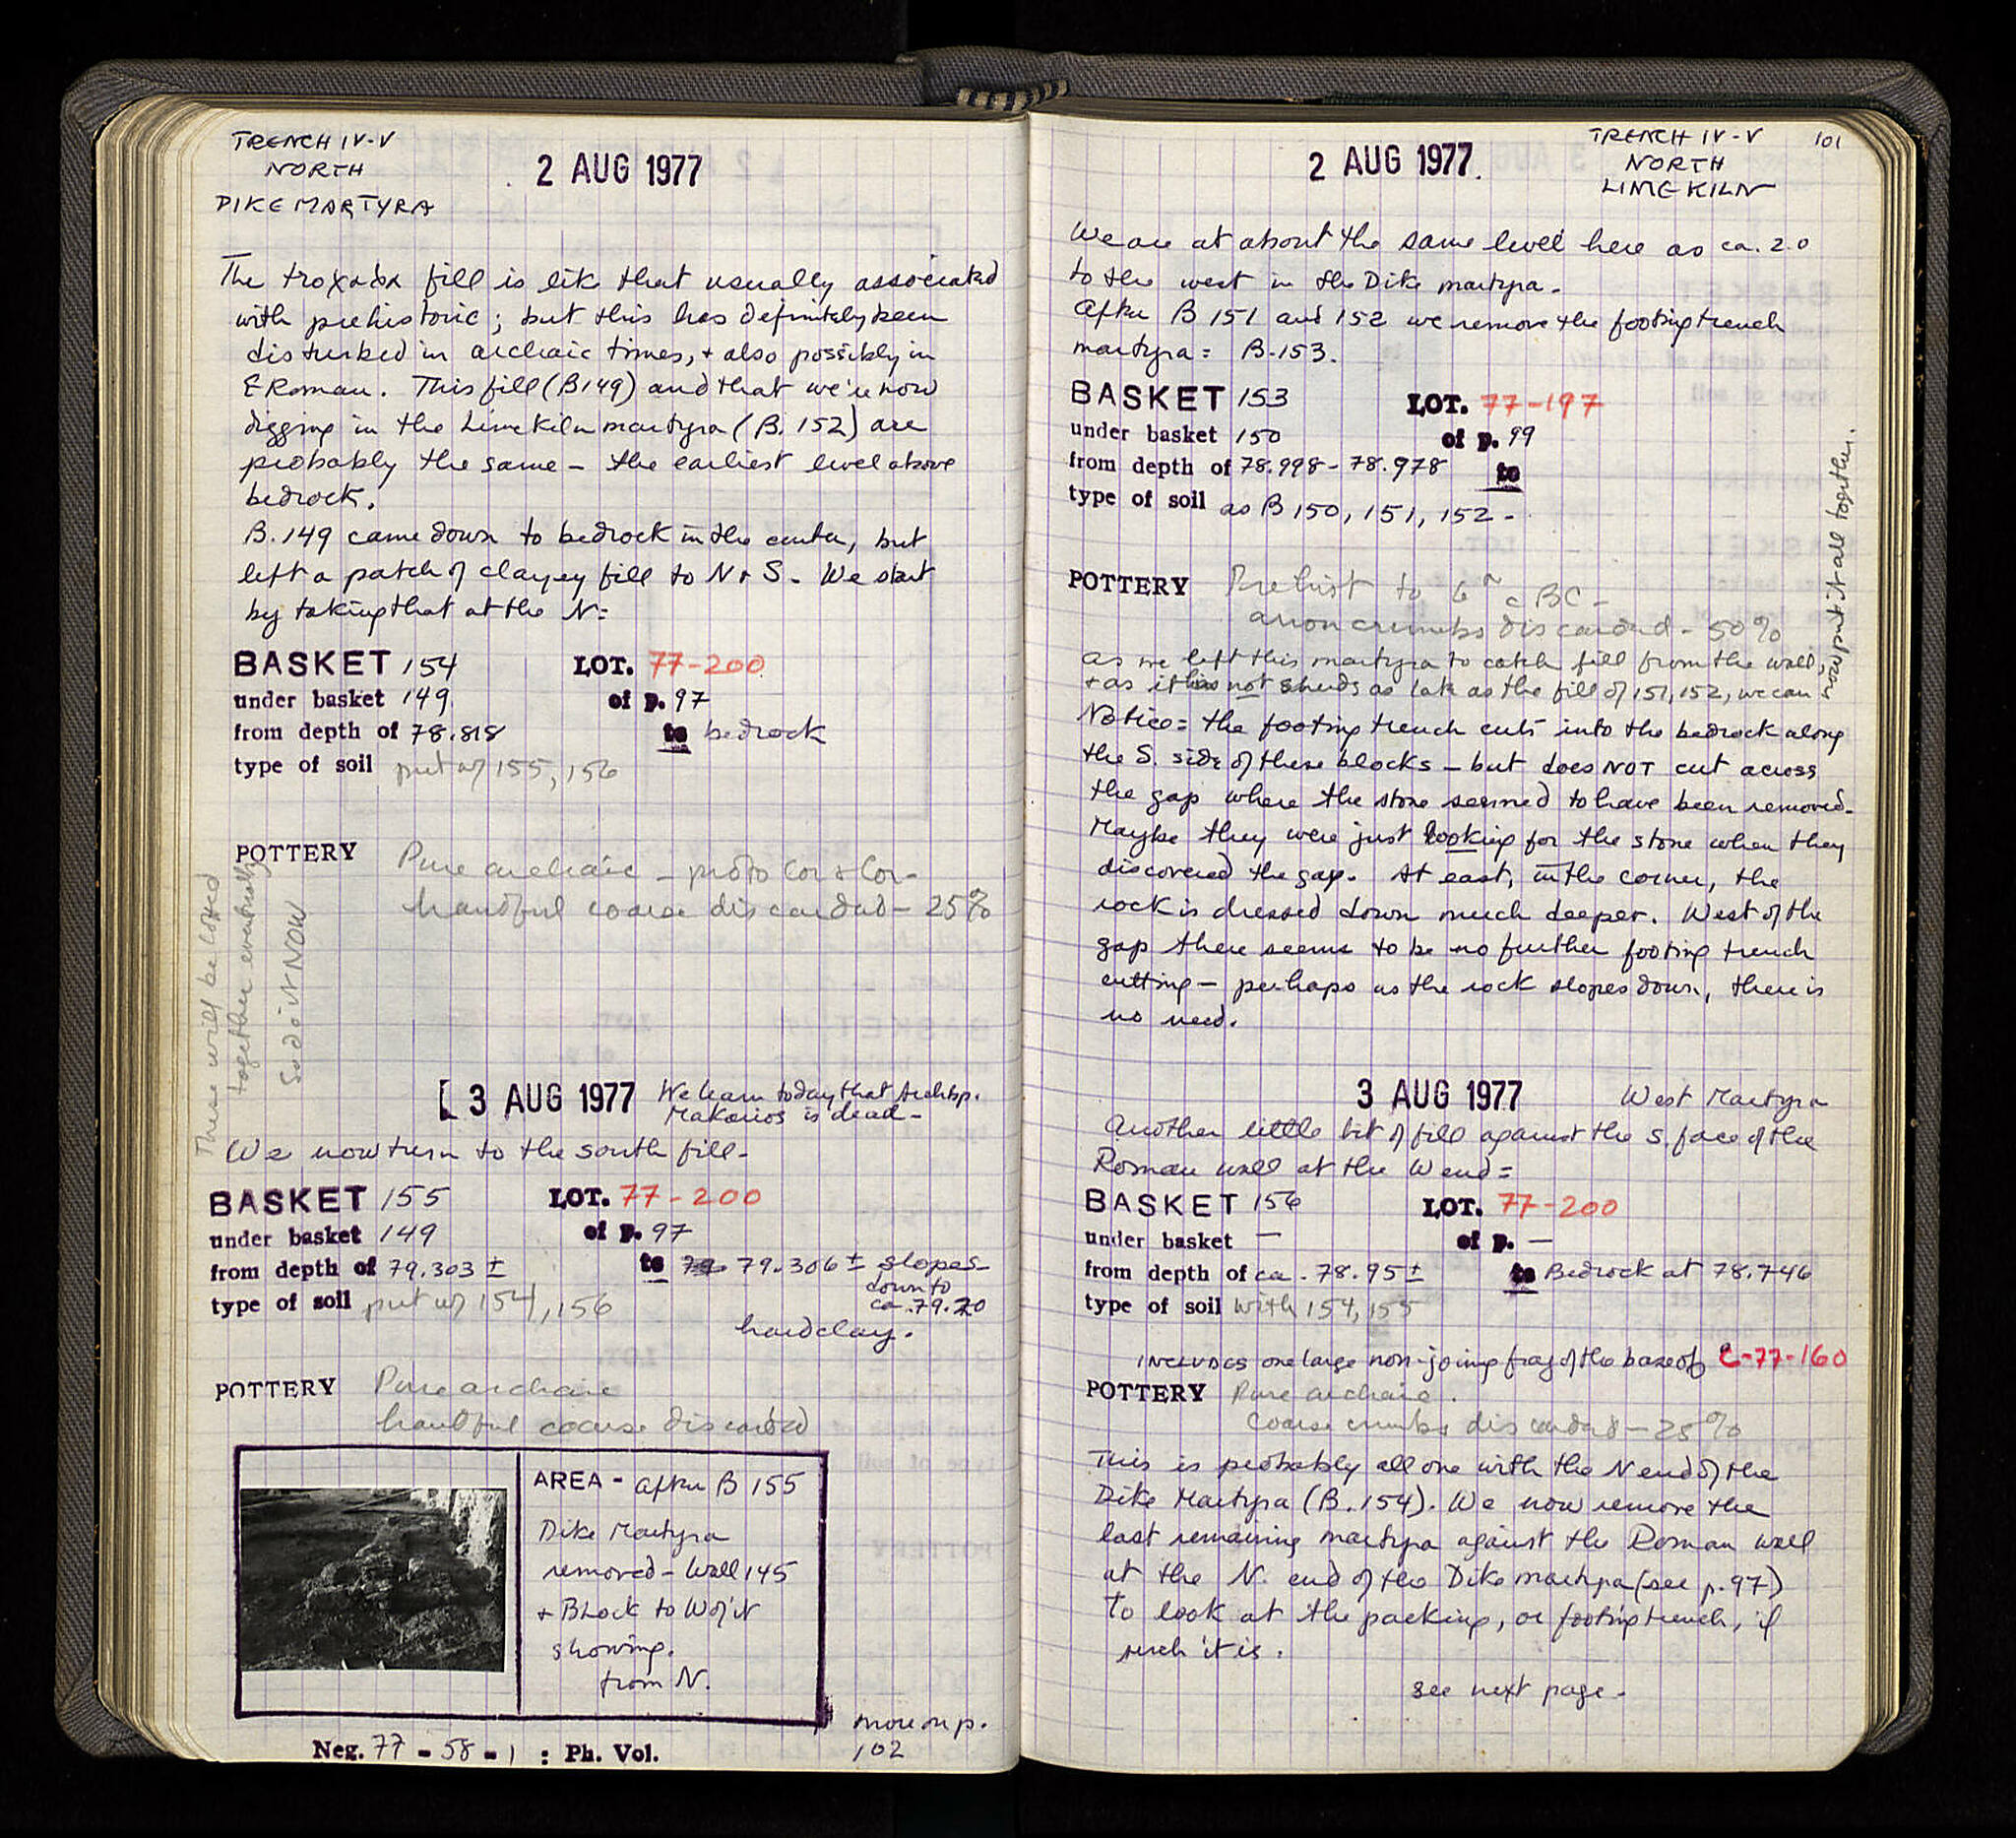 TRENCH IV-V
NORTH
DIKE MARTYRA
2 AUG 1977
The τροχαδα fill is like that usually associated
with prehistoric; but this has definitely been
disturbed in archaic times, + also possibly in
E Roman. This fill (B149) and that we're now
digging in the Lime Kiln martyra (B. 152) are
probably the same - the earliest level above
bedrock.
B. 149 came down to bedrock in the center, but
left a patch of clayey fill to N + S. We start
by taking that at the N:
BASKET 154 LOT. 77-200
under basket 149 of p. 97
from depth of 78.818 to bedrock
type of soil put w/ 155, 156
POTTERY Pure archaic - proto Cor & Cor-
handful coarse discarded - 25%
These will be lotted
together eventually
So do it NOW
[ 3 AUG 1977 We learn today that Archbp.
Makarios is dead -
We now turn to the south fill-
BASKET 155 LOT. 77-200
under basket 149 of p. 97
from depth of 79.303 ± to 79.306 ± slopes
down to
ca. 79.20
type of soil put w/ 154, 156
hard clay.
POTTERY Pure archaic
handful coarse discarded
AREA - after B 155
Dike Martyra
removed - Wall 145
+ Block to W of it
showing.
from N.
more on p.
102
Neg. 77 - 58 - 1 : Ph. Vol.
2 AUG 1977.
TRENCH IV-V
NORTH
LIME KILN
101
We are at about the same level here as ca. 2.0
to the west in the Dike martyra.
After B 151 and 152 we remove the footing trench
martyra: B-153.
BASKET 153 LOT. 77-197
under basket 150 of p. 99
from depth of 78.998 - 78.978 to
type of soil as B 150, 151, 152 -
POTTERY Prehist to 6 c BC -
crumbs discarded - 50%
as we left this martyra to catch fill from the wall,
+ as it has not sherds as late as the fill of 151, 152, we can
now put it all together.
Notice: the footing trench cuts into the bedrock along
the S. side of these blocks - but does NOT cut across
the gap where the stone seemed to have been removed.
Maybe they were just looking for the stone when they
discovered the gap. At east, in the corner, the
rock is dressed down much deeper. West of the
gap there seems to be no further footing trench
cutting - perhaps as the rock slopes down, there is
no need.
3 AUG 1977 West Martyra
Another little bit of fill against the S. face of the
Roman wall at the W end:
BASKET 156 LOT. 77-200
under basket — of p. —
from depth of ca. 78.95 ± to Bedrock at 78.746
type of soil with 154, 155
INCLUDES one large non-joining frag of the base of C-77-160
POTTERY Pure archaic.
Coarse crumbs discarded - 25%
This is probably all one with the N end of the
Dike Martyra (B. 154). We now remove the
last remaining martyra against the Roman wall
at the N. end of the Dike martyra (see p. 97)
to look at the packing, or footing trench, if
such it is.
see next page -